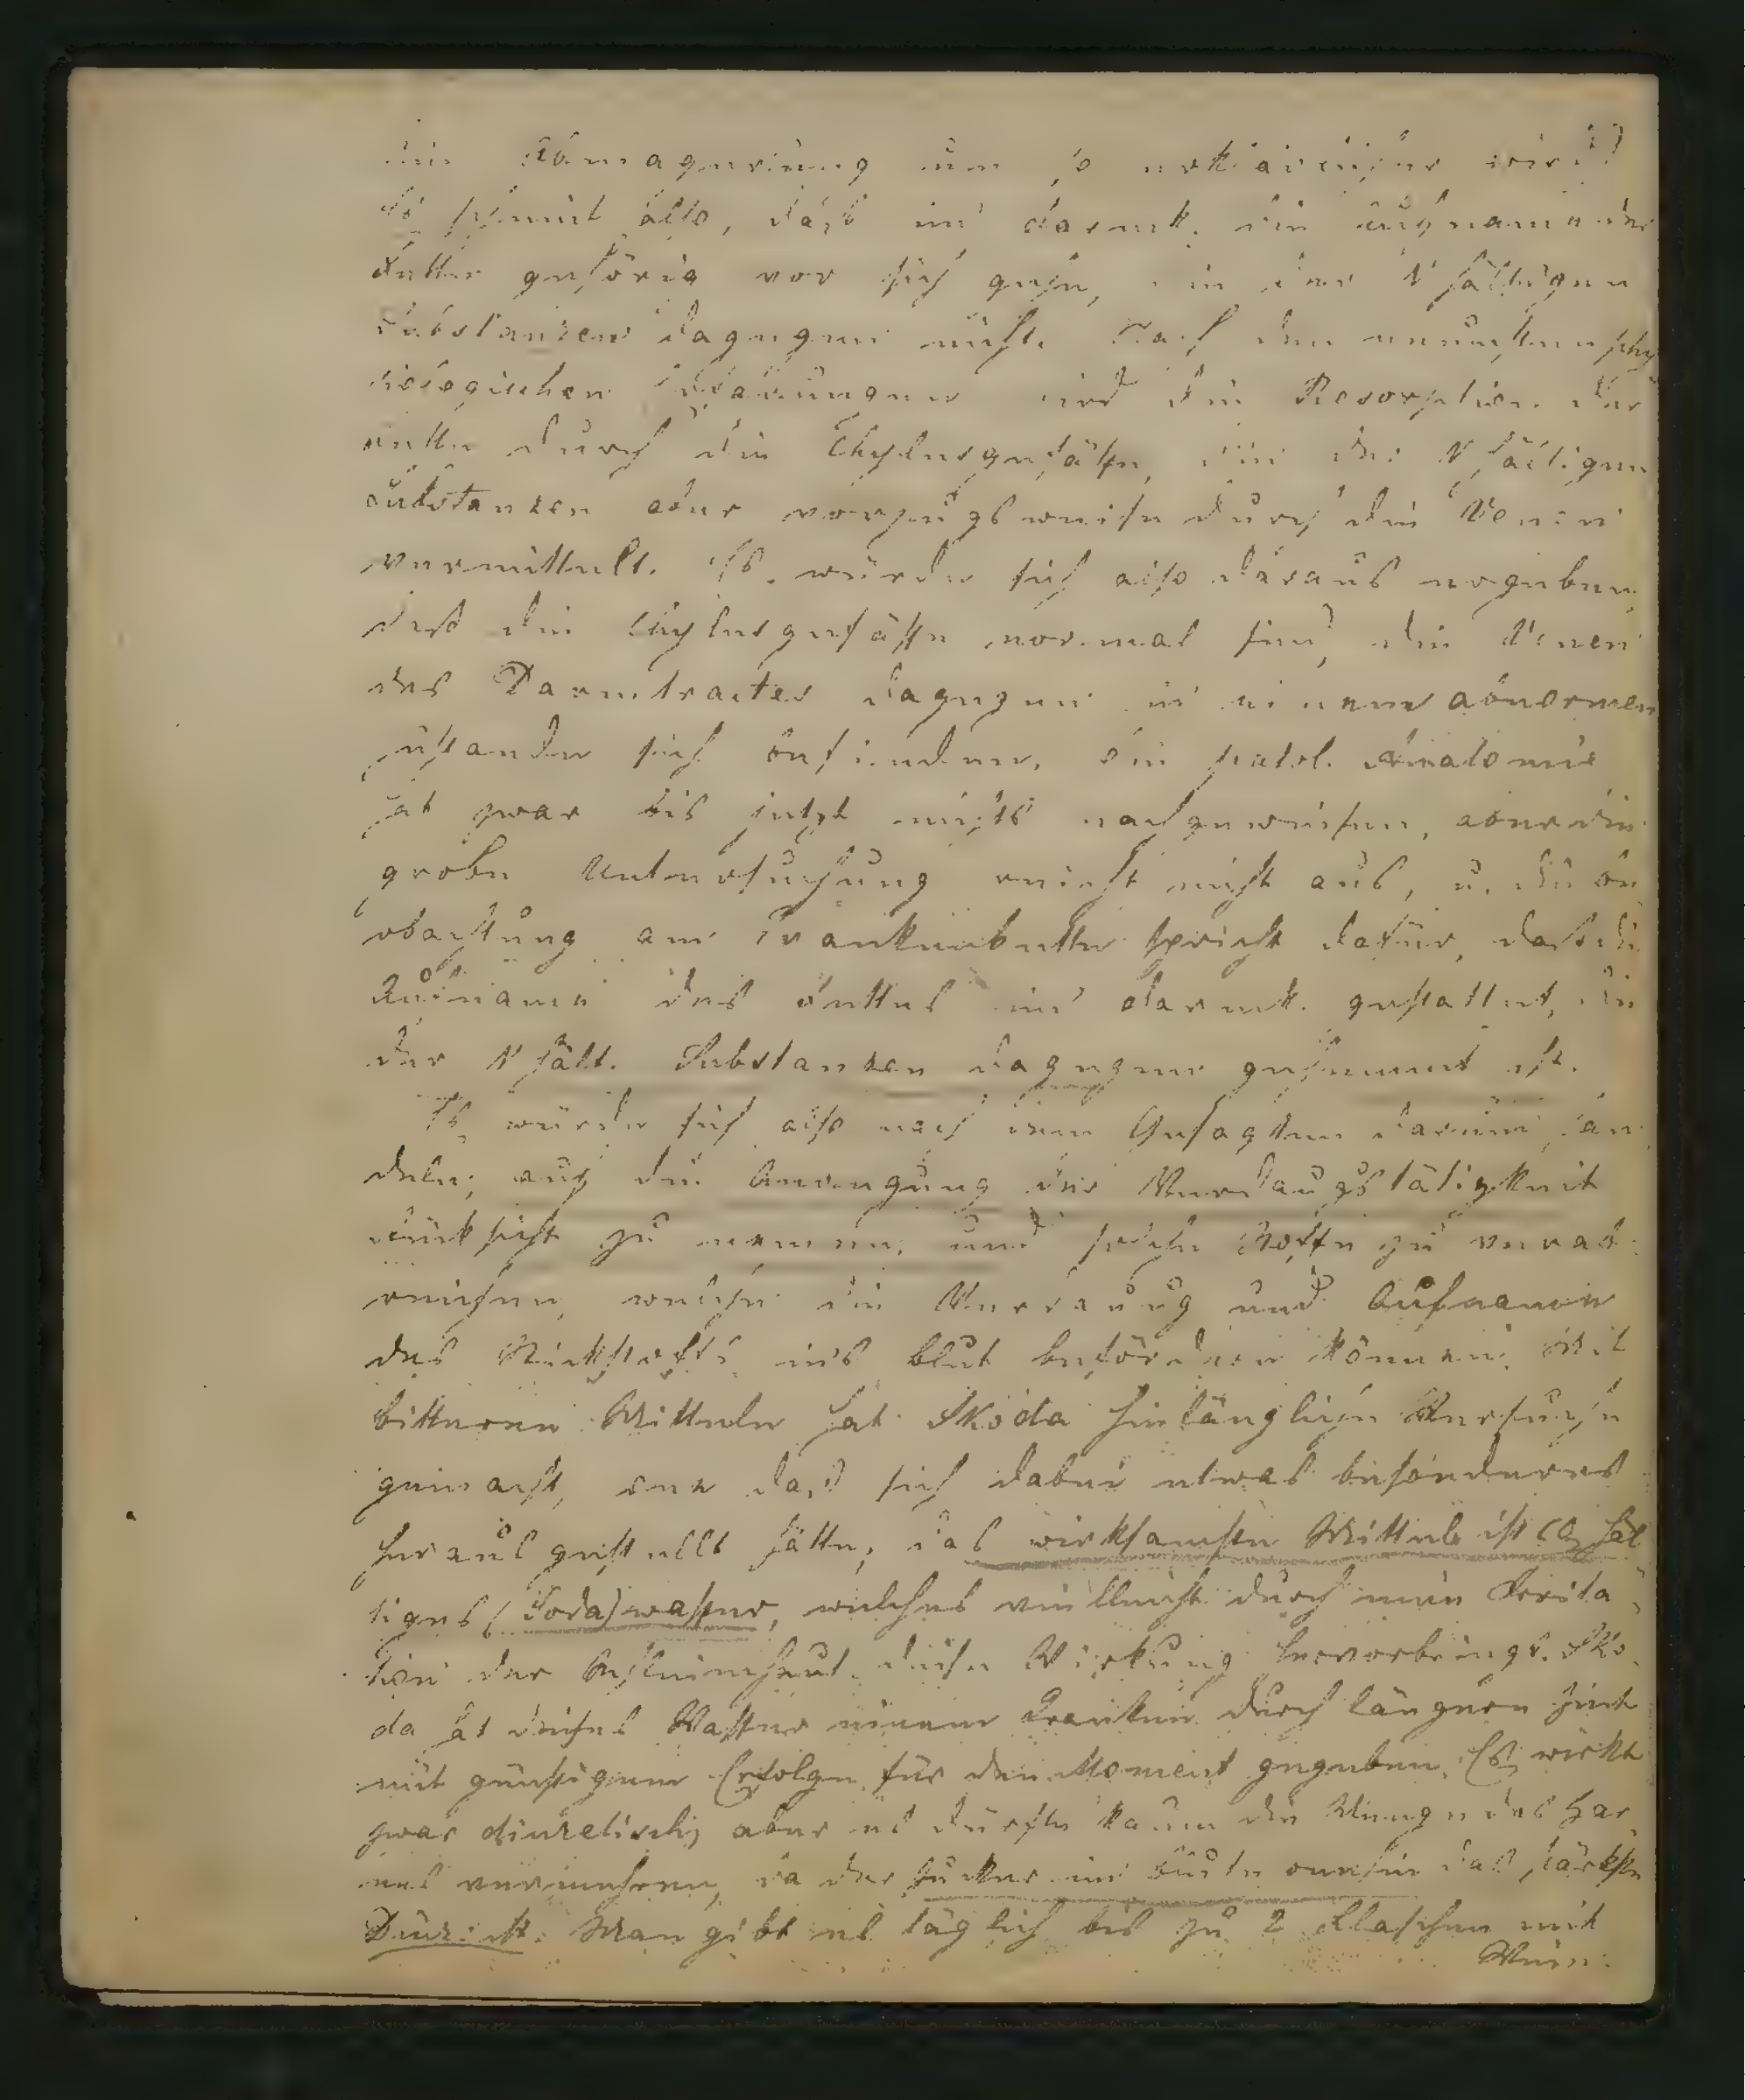 die Abmagerung um so erklärlicher wird
Es scheint also, daß im Darmk. die Aufname der
Fette gehörig vor sich gehe, die der N hältigen
Substanzen dagegen nicht. Nach den neuesten phy
siologischen Erfarungen wird die Resorption der
Fette durch die Chylusgefäße, die der N hältigen
Substanzen aber vorzugsweise durch die Venen
vermittelt. Es würde sich also daraus ergeben,
daß die Chylusgefäße normal sind, die Venen
des Darmtractes dagegen in einem abnormen
Zustande sich befinden. Die pathol. Anatomie
hat zwar bis jetzt nichts nachgewiesen, aber die
grobe Untersuchung reicht nicht aus, u. die Be
obachtung am Krankenbette spricht dafür, daß die
Aufname des Fettes im Darmk. gestattet, die
der N hält. Substanzen dagegen gehemmt ist.
Es würde sich also nach dem Gesagten darum han
deln, auf die Anregung der Verdaugstätigkeit
Rücksicht zu nemen, und solche Stoffe zu verab
reichen, welche die Verdauug und Aufname
des Stickstoffs ins Blut befördern können. Mit
bitteren Mitteln hat Skoda hinlänglich Versuche
gemacht, one daß sich dabei etwas besonderes
herausgestellt hätte, das wirksamste Mittel ist CO2 häl
tiges (Soda) wasser, welches vielleicht durch eine Irrita
tion der Schleimhaut diese Wirkung hervorbringt. Sko
da hat dieses Wasser einem Kranken durch längere Zeit
mit günstigem Erfolge für den Moment gegeben. Es wirkt
zwar diuretisch, aber es dürfte kaum die Menge des Har
nes vermehren, da der Zucker im Blute onehin das stärkste
Diur: ist. Man gibt es täglich bis zu 2 Flaschen mit
Wein.